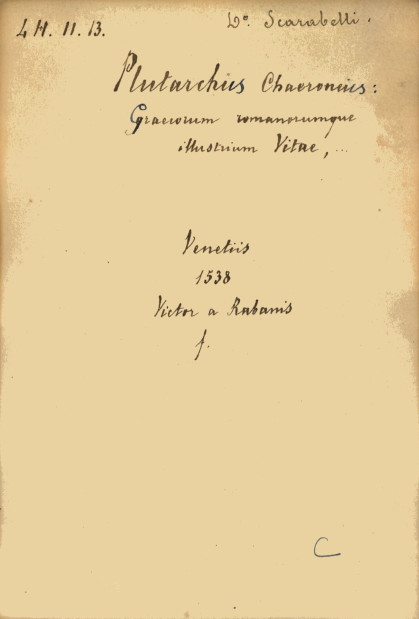 4 H. 11. 13.
Dº. Scarabelli.
Plutarchius Chaeroneius:
Graecorum romanorumque
illustrium Vitae, ...
Venetiis
1538
Victor a Rabanis
f.
C